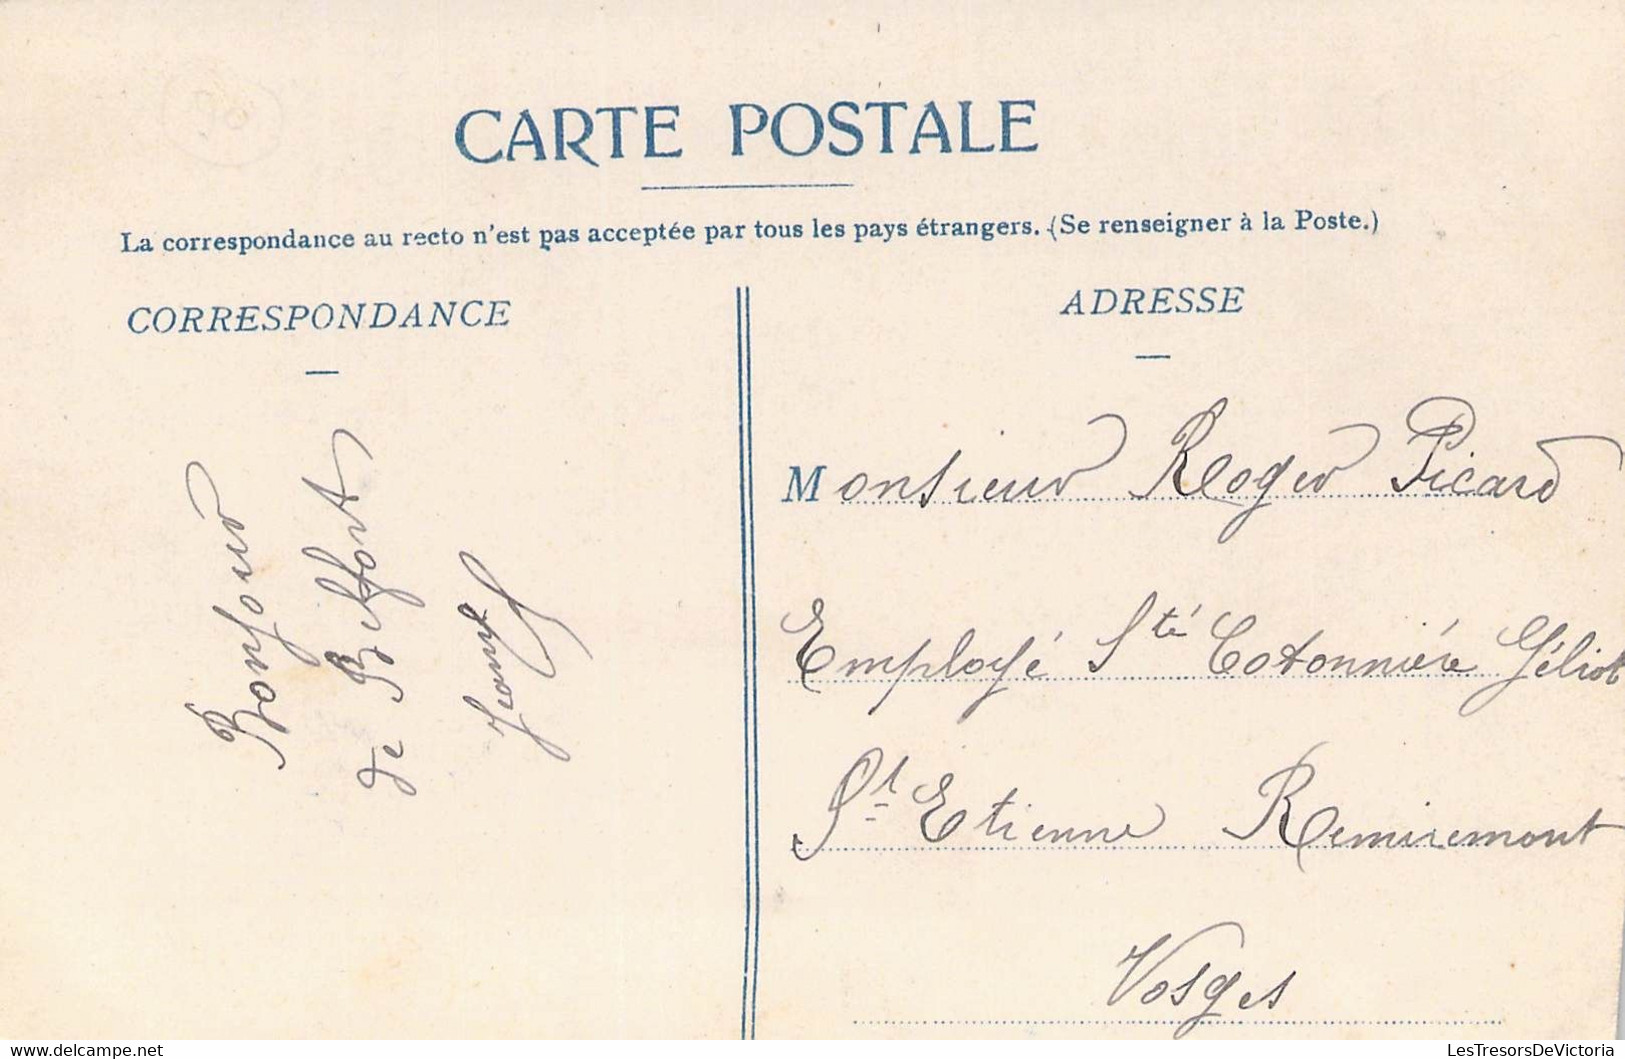 CARTE POSTALE
La correspondance au recto n'est pas acceptée par tous les pays étrangers. (Se renseigner à la Poste.)
CORRESPONDANCE
Bonjour
de Belfort
ADRESSE
Monsieur Roger Picard
Employé Sté Cotonnière Géliot
St Etienne Remiremont
Vosges
LesTresorsDeVictoria